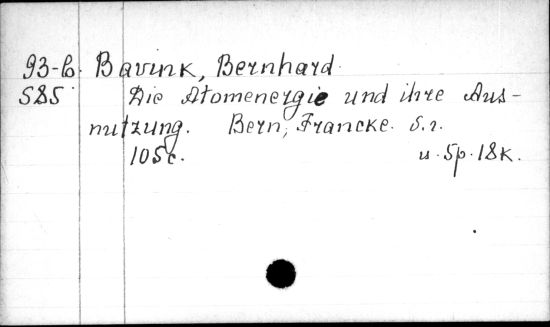 93-б. Bavink, Bernhard
S85 Die Atomenergie und ihre Aus-
nutzung. Bern, Francke. S. a.
105c. ц. 5р. 18к.